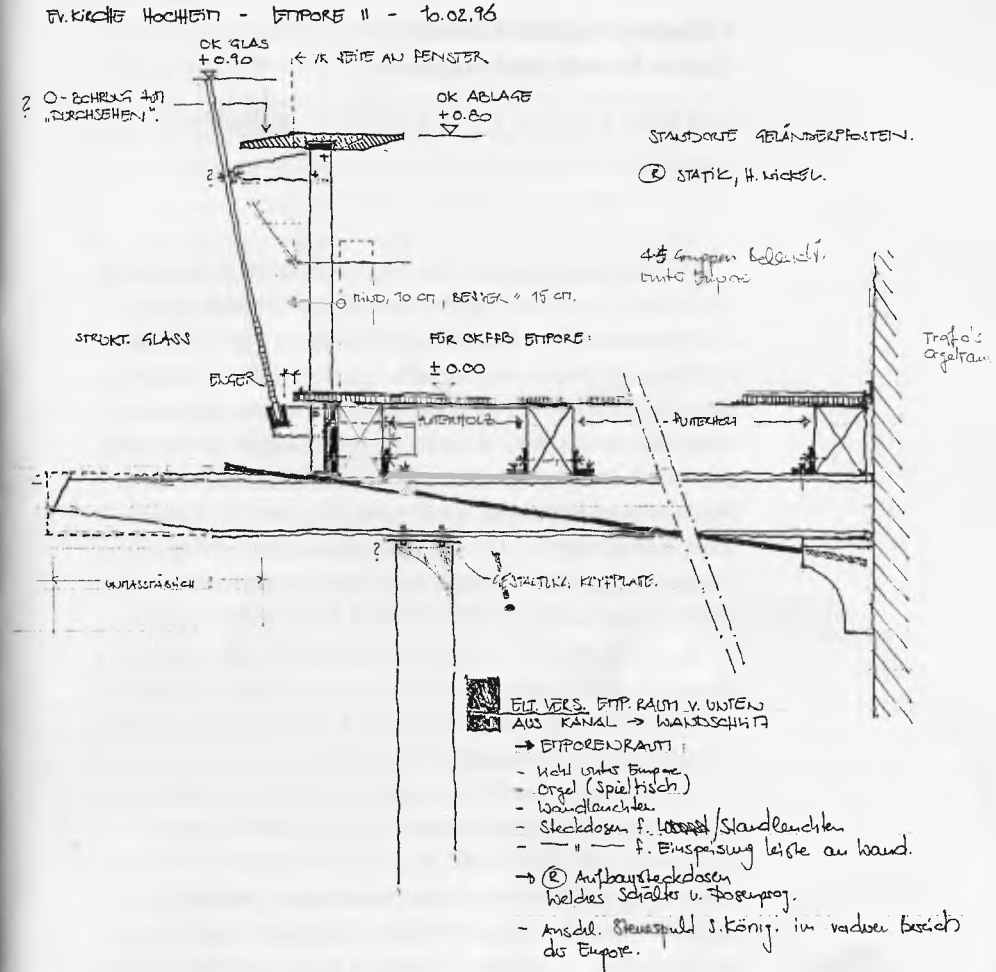 EV. KIRCHE HOCHHEIM - EMPORE II - 10.02.96
OK GLAS
+0.90
? O-BOHRUNG ZUM
„DURCHSEHEN".
SEITE AN FENSTER
OK ABLAGE
+0.80
STANDORTE GELÄNDERPFOSTEN.
R STATIK, H. NICKEL.
?
4-5 Gruppen Beleucht.
unter Empore
MIND. 10 CM, BESSER " 15 CM.
STRUKT. GLASS
FÜR OKFFB EMPORE:
± 0.00
Trafo's
Orgelraum
ENGER
FUTTERHOLZ
FUTTERHOLZ
UNMASSTÄBLICH
?
GESTALTUNG KOPFPLATTE.
ELT. VERS. EMP. RAUM V. UNTEN
AUS KANAL → WANDSCHLITZ
→ EMPORENRAUM:
- Licht unter Empore
- Orgel (Spieltisch)
- Wandleuchten
- Steckdosen f. /Standleuchten
- — " — f. Einspeisung leiste an Wand.
→ R Aufbausteckdosen
Welches Schalter u. Dosenprog.
- Anschl. Steuerpult S. König. im vorderen Bereich
der Empore.